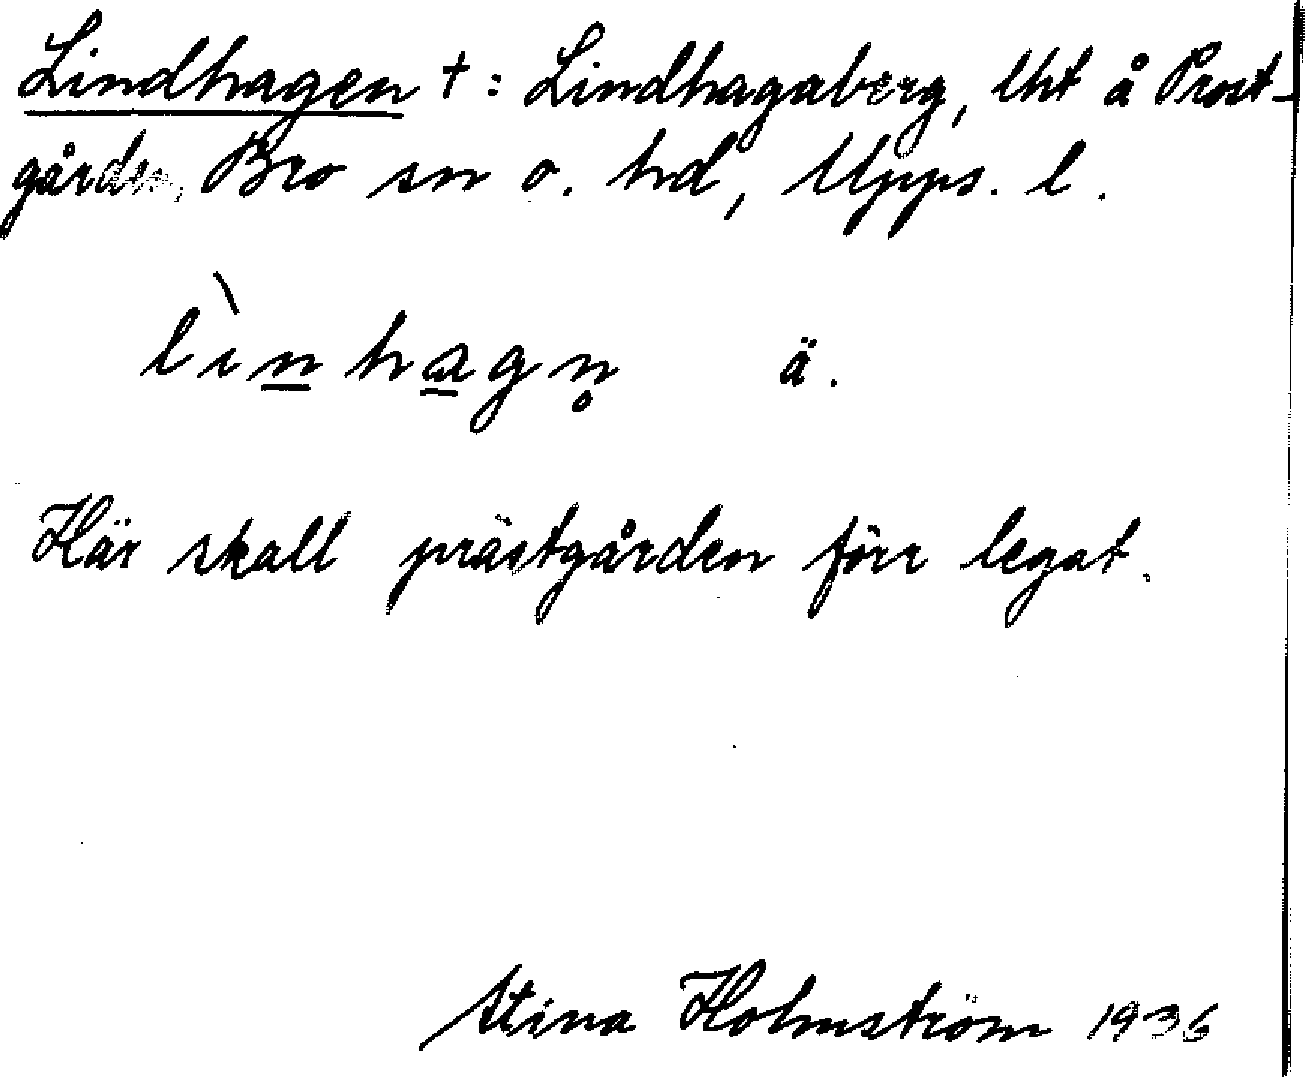 Lindhagen †: Lindhagaberg, Uht å Prost-
gården, Bro sn o. hd, Upps. l.
lìnhagn̥ ä.
Här skall prästgården förr legat.
Stina Holmström 1936